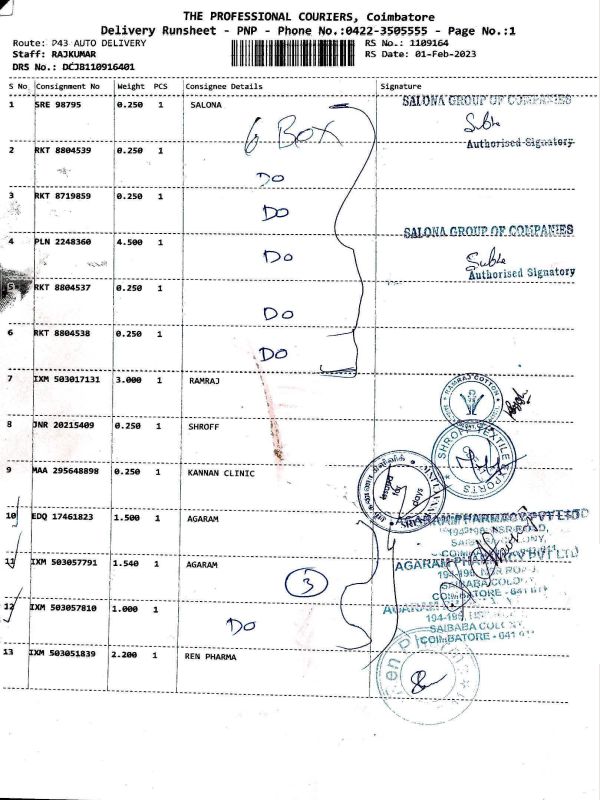 THE PROFESSIONAL COURIERS, Coimbatore
Delivery Runsheet - PNP - Phone No.:0422-3505555 - Page No.:1
Route: D43 AUTO DELIVERY RS No.: 1109164
Staff: RAJKUMAR RS Date: 01-Feb-2023
DRS No.: DCJB110916401
S No Consignment No Weight PCS Consignee Details Signature
1 SRE 98795 0.250 1 SALONA SALONA GROUP OF COMPANIES
6 BOX
Authorised Signatory
2 RKT 8804539 0.250 1
DO
3 RKT 8719859 0.250 1
DO
SALONA GROUP OF COMPANIES
4 PLN 2248360 4.500 1
DO
Authorised Signatory
5 RKT 8804537 0.250 1
DO
6 RKT 8804538 0.250 1
DO
7 IXM 503017131 3.000 1 RAMRAJ
RAMRAJ COTTON
8 JNR 20215409 0.250 1 SHROFF
SHROFF TEXTILE EXPORTS
9 MAA 295648898 0.250 1 KANNAN CLINIC
10 EDQ 17461823 1.500 1 AGARAM
AGARAM PHARMACY PVT LTD
194-196, NSR ROAD,
SAIBABA COLONY,
11 IXM 503057791 1.540 1 AGARAM
AGARAM PHARMACY PVT LTD
194-196, NSR ROAD,
SAIBABA COLONY,
COIMBATORE - 641 011
3
12 IXM 503057810 1.000 1
AGARAM
194-196, NSR
SAIBABA COLONY,
COIMBATORE - 641 011
DO
13 IXM 503051839 2.200 1 REN PHARMA
Ren Pharma